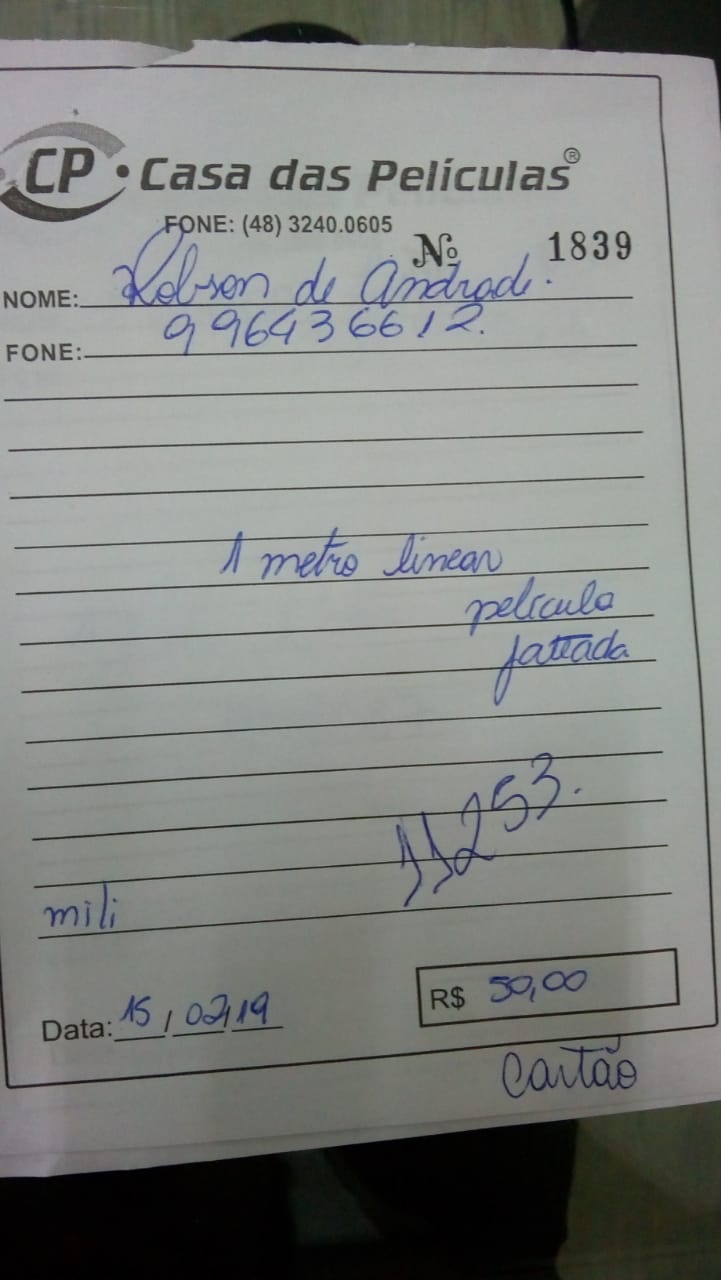 CP • Casa das Películas®
FONE: (48) 3240.0605
Nº 1839
NOME: Robson de Andrade.
FONE: 996436612.
1 metro linear
pelicula
jateada
11253.
mili
Data: 15/02/19
R$ 50,00
cartão